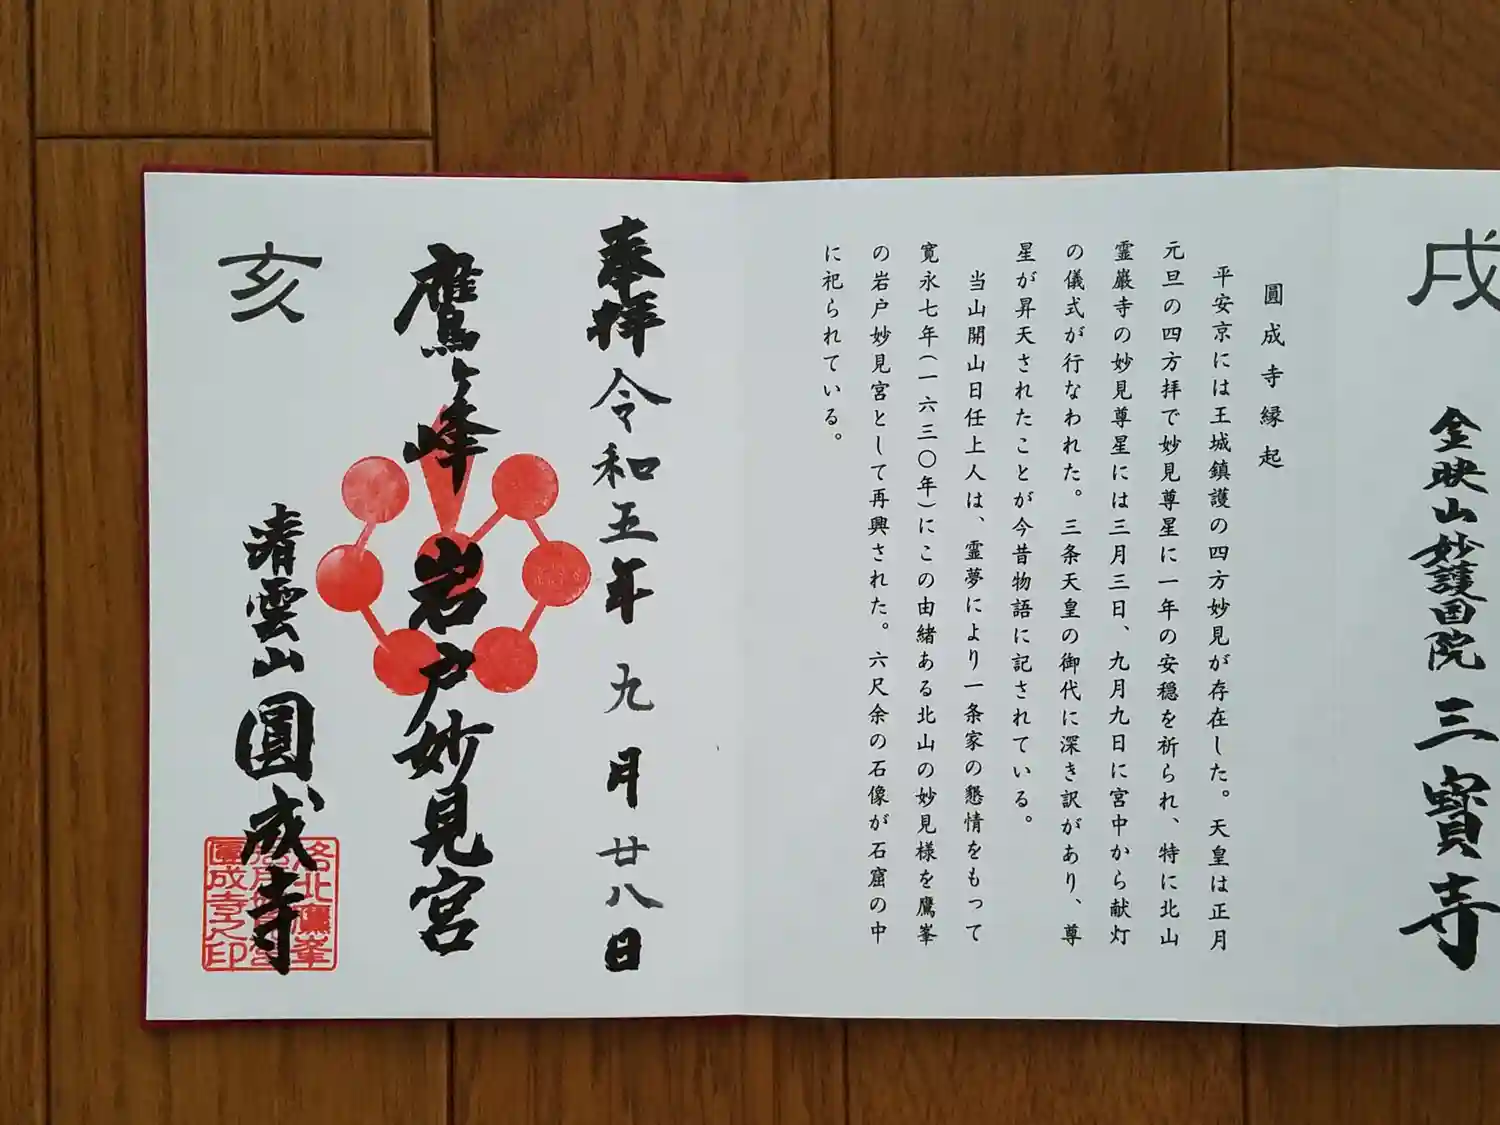 戌
金映山妙護国院 三寳寺
圓成寺縁起
平安京には王城鎮護の四方妙見が存在した。天皇は正月
元旦の四方拝で妙見尊星に一年の安穏を祈られ、特に北山
霊巌寺の妙見尊星には三月三日、九月九日に宮中から献灯
の儀式が行なわれた。三条天皇の御代に深き訳があり、尊
星が昇天されたことが今昔物語に記されている。
当山開山日任上人は、霊夢により一条家の懇情をもって
寛永七年(一六三〇年)にこの由緒ある北山の妙見様を鷹峯
の岩戸妙見宮として再興された。六尺余の石像が石窟の中
に祀られている。
奉拝 令和五年 九月廿八日
鷹ヶ峰 岩戸妙見宮
亥
清雲山 圓成寺
洛北鷹峯
圓成寺之印